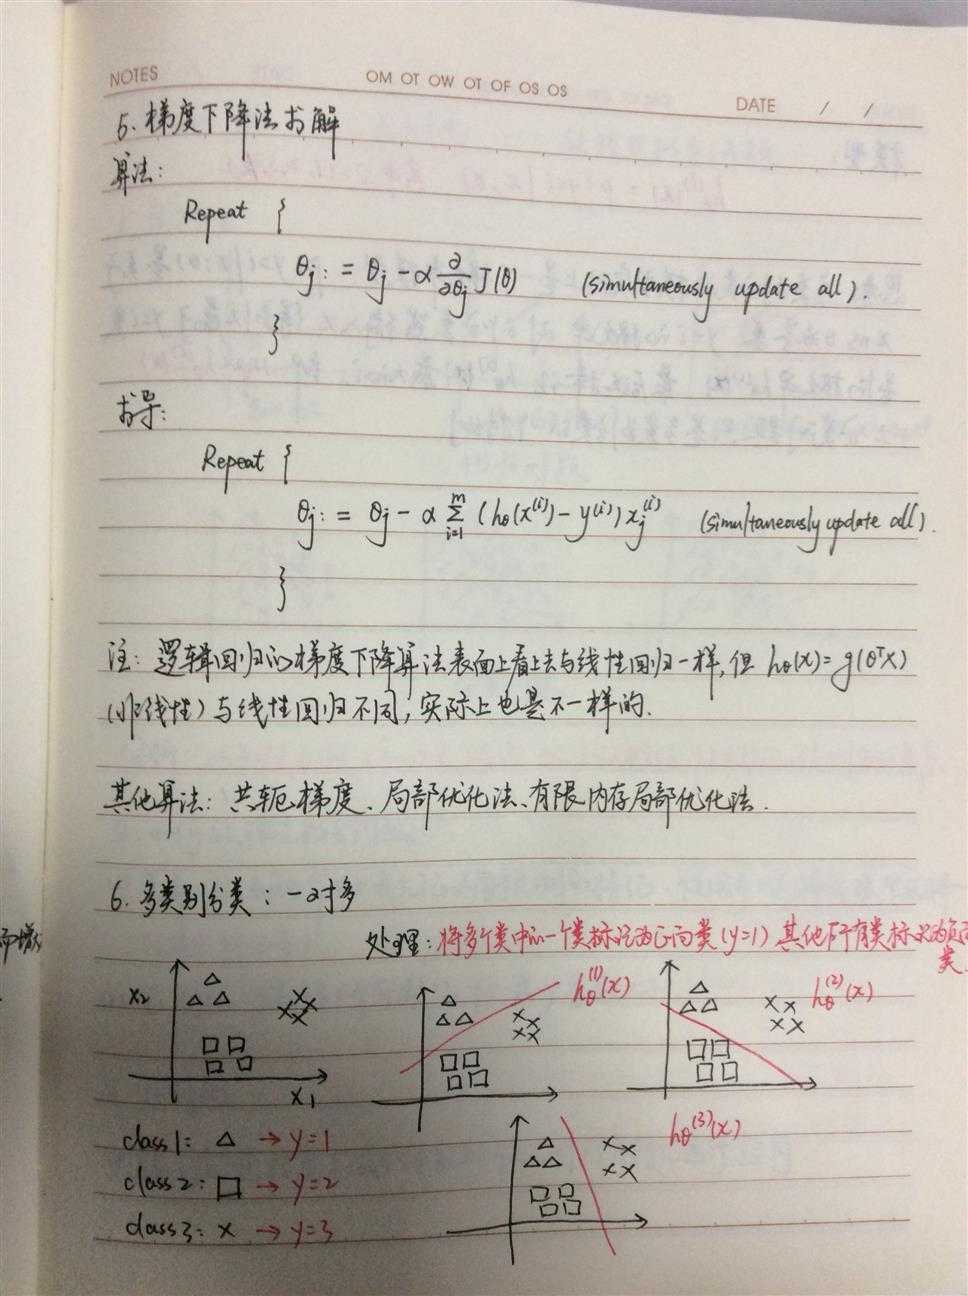 NOTES
OM OT OW OT OF OS OS
DATE / /
5. 梯度下降法求解
算法:
Repeat {
θj := θj - α ∂/∂θj J(θ) (simultaneously update all).
}
求导:
Repeat {
θj := θj - α Σ_{i=1}^{m} (hθ(x^(i)) - y^(i)) xj^(i) (simultaneously update all).
}
注: 逻辑回归的梯度下降算法表面上看上去与线性回归一样, 但 hθ(x) = g(θᵀX)
(非线性) 与线性回归不同, 实际上也是不一样的.
其他算法: 共轭梯度、局部优化法、有限内存局部优化法.
6. 多类别分类: 一对多
处理: 将多个类中的一个类标记为正向类 (y=1) 其他所有类标记为负向
类.
x2
x1
hθ^(1)(x)
hθ^(2)(x)
class1: △ → y=1
class2: □ → y=2
class3: × → y=3
hθ^(3)(x)